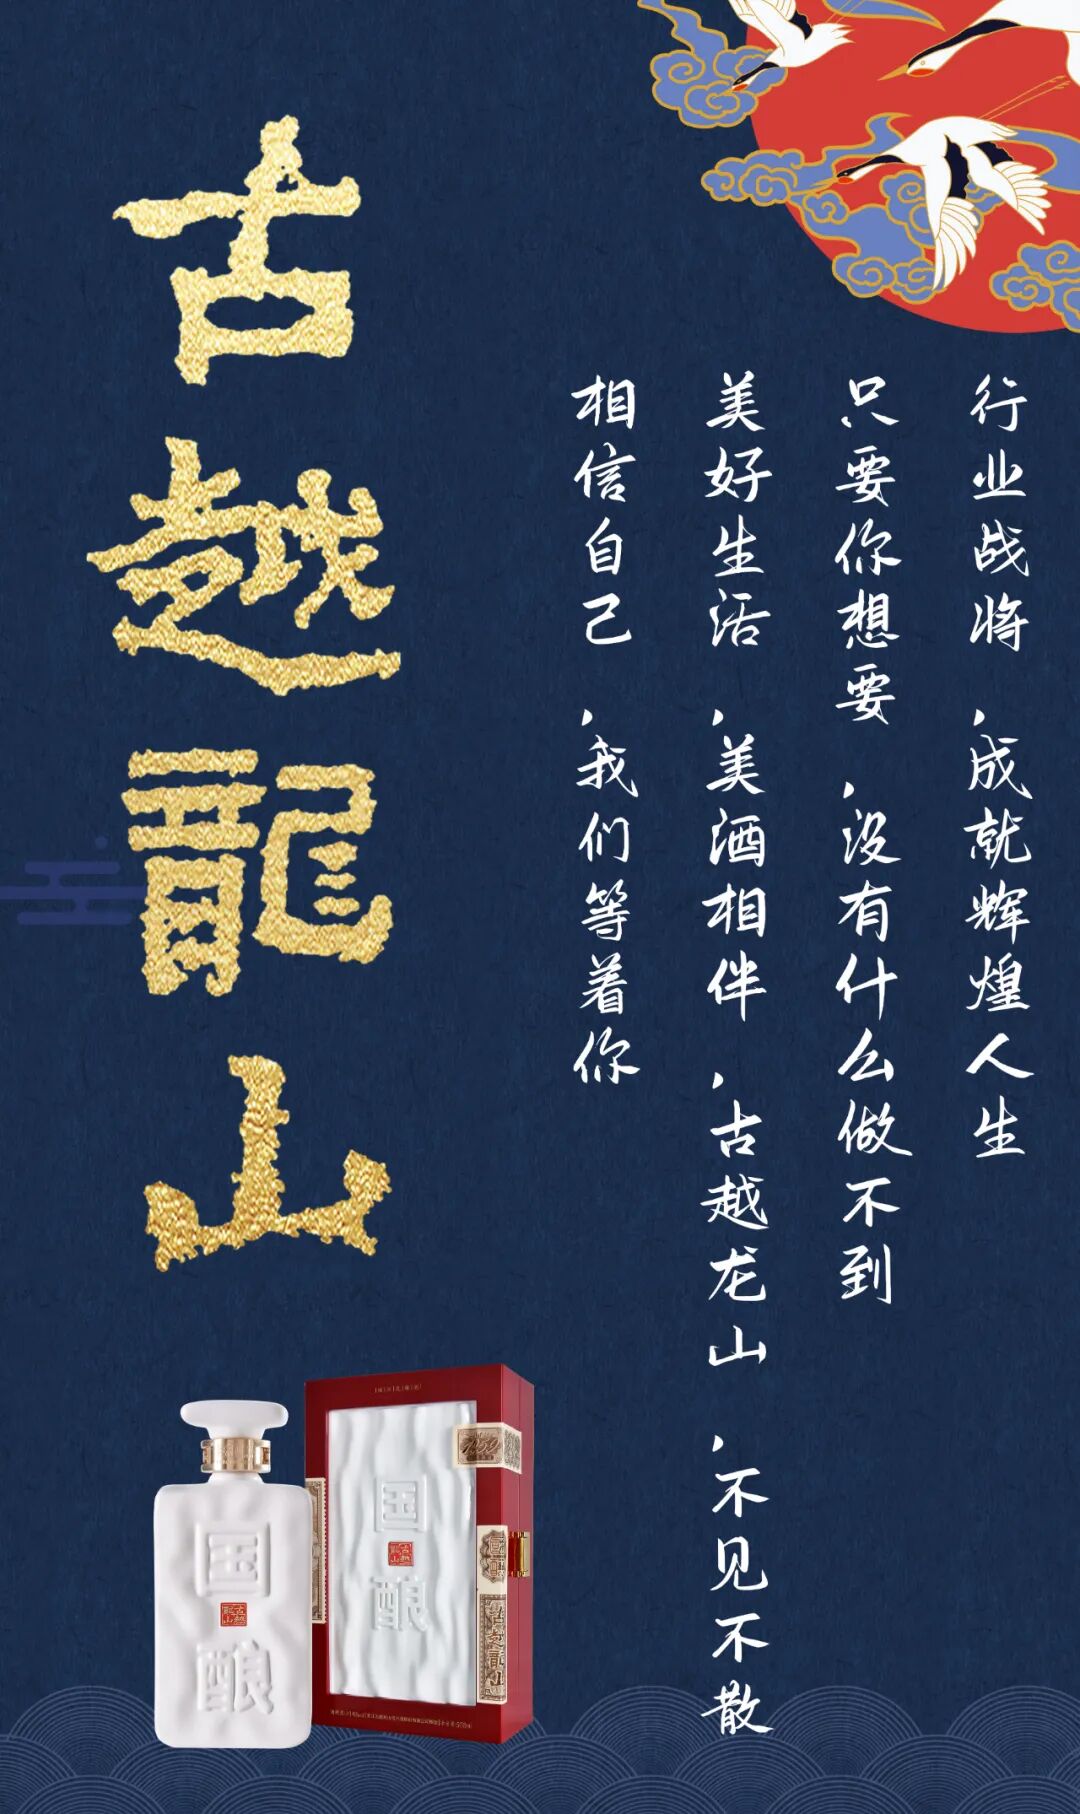 行业战将,成就辉煌人生
只要你想要,没有什么做不到
美好生活,美酒相伴,古越龙山,不见不散
相信自己,我们等着你
古越龍山
国酿
古越龍山
国酿
古越龍山
1959
古越龍山